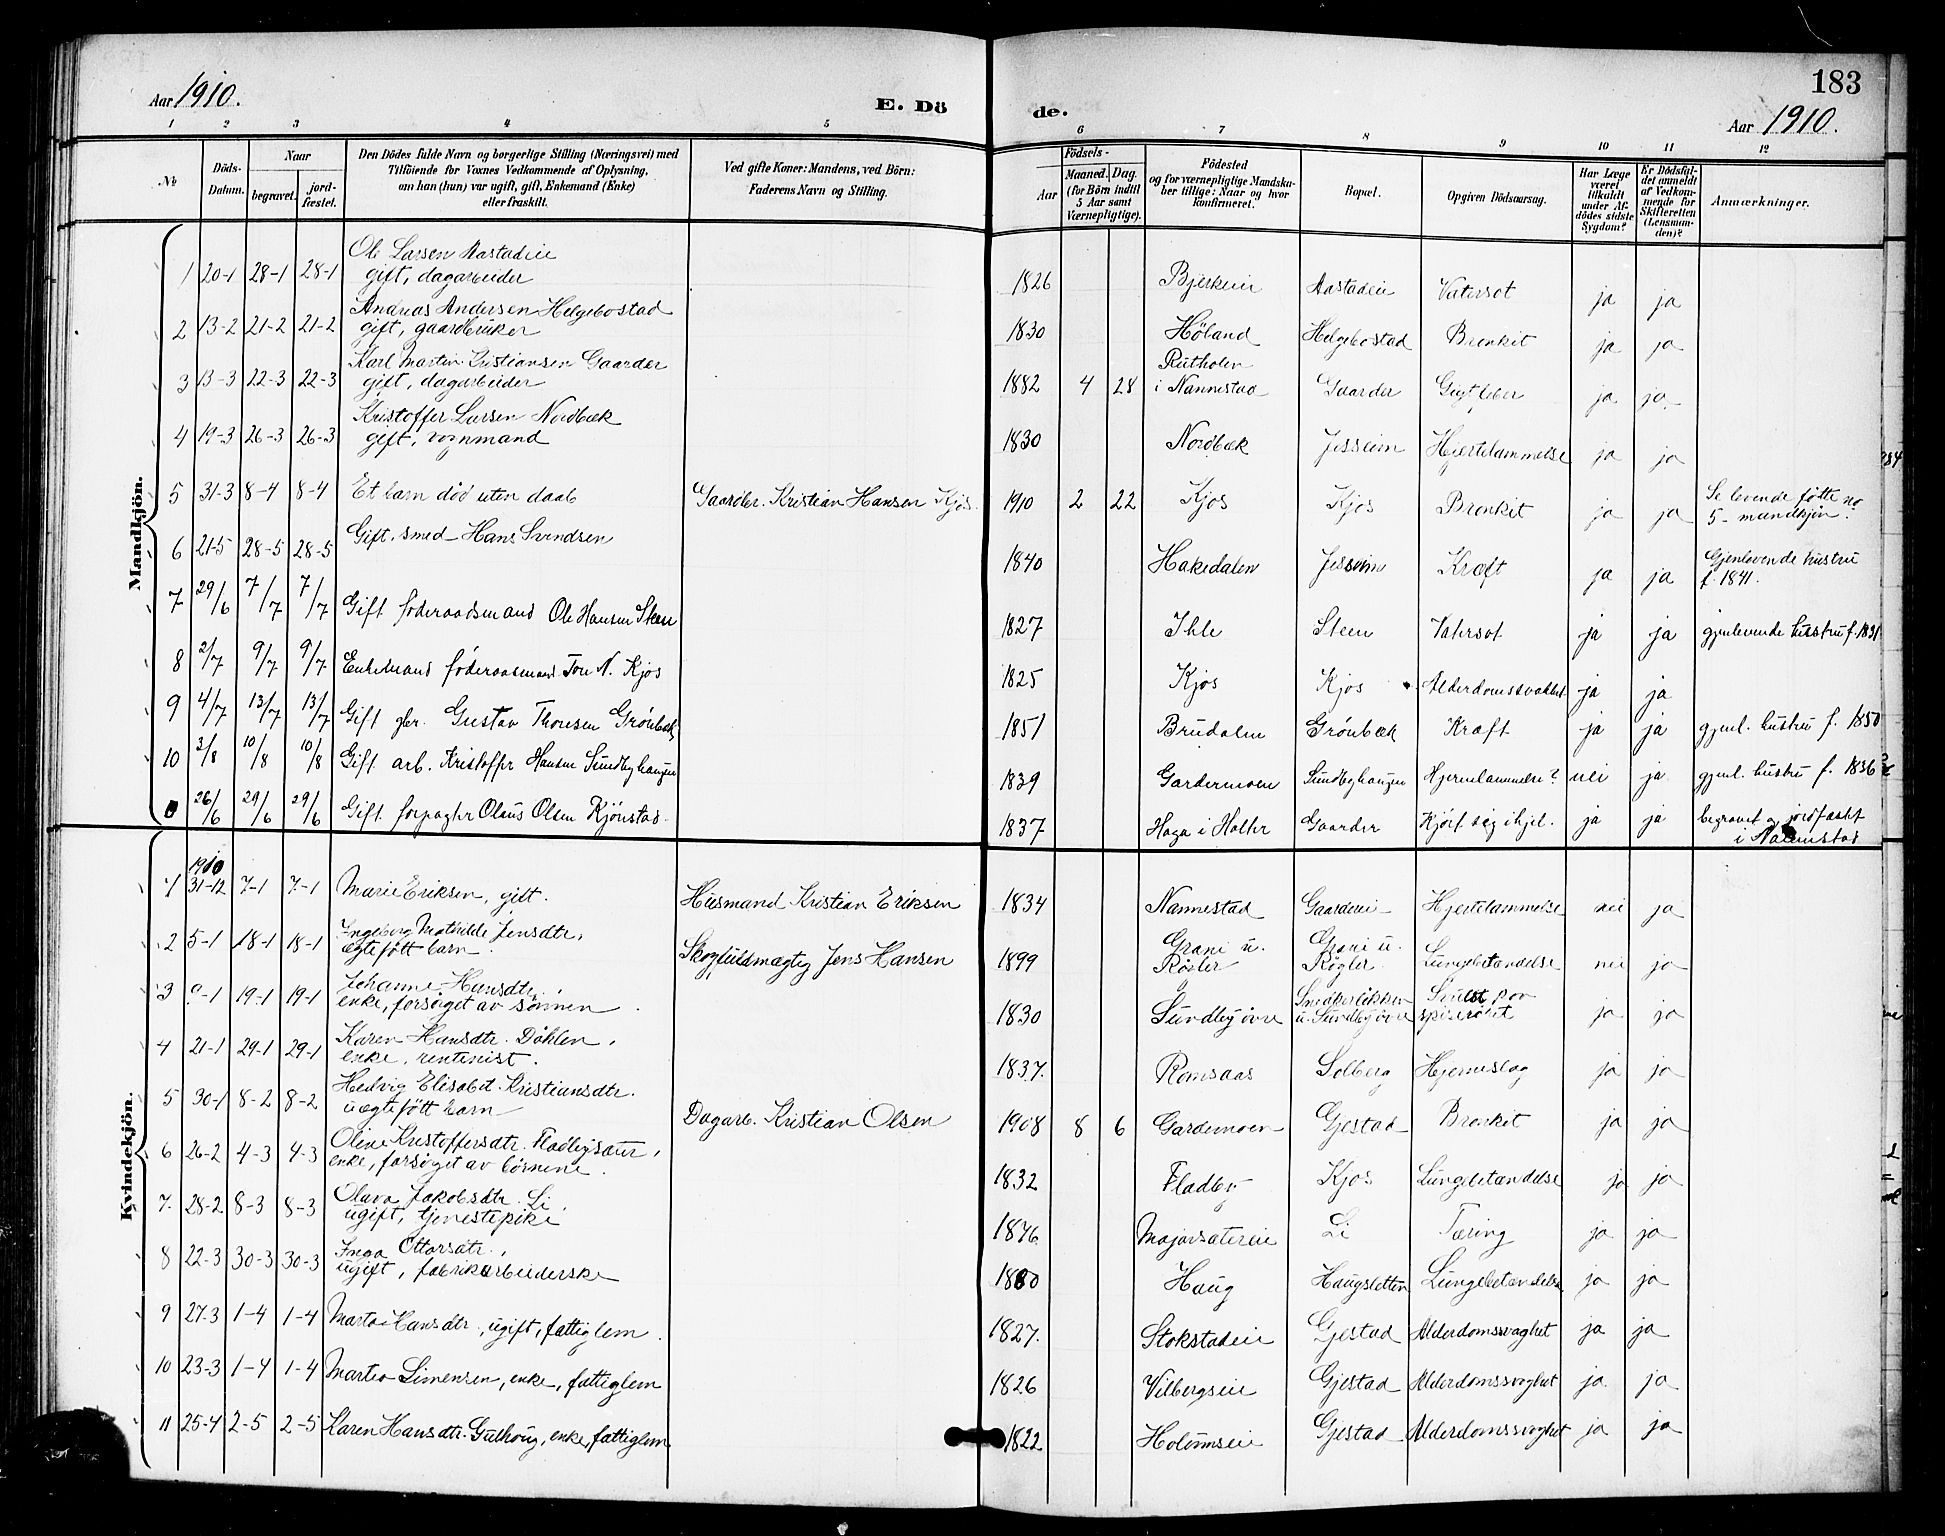 183
Aar 1910.
E. Dö
de.
Aar 1910.
1 2 3 4 5 6 7 8 9 10 11 12
No
Döds-
Datum.
Naar
begravet.
jord-
fæstet.
Den Dödes fulde Navn og borgerlige Stilling (Næringsvei) med
Tilföiende for Voxnes Vedkommende af Oplysning,
om han (hun) var ugift, gift, Enkemand (Enke)
eller fraskilt.
Ved gifte Koner: Mandens, ved Börn:
Faderens Navn og Stilling.
Födsels-
Aar
Maaned.
Dag.
(for Börn indtil
5 Aar samt
Værnepligtige).
Födested
og for værnepligtige Mandska-
ber tillige: Naar og hvor
konfirmeret.
Bopæl.
Opgiven Dödsaarsag.
Har Læge
været
tilkaldt
under Af-
dödes sidste
Sygdom?
Er Dödsfal-
det anmeldt
af Vedkom-
mende for
Skifteretten
(Lensman-
den)?
Anmærkninger.
Mandkjön.
Ole Larsen Aastadeie
1 20-1 28-1 28-1 gift, dagarbeider 1826 Bjerkeeie Aastadeie Vatersot ja ja
Andreas Andersen Helgebostad
2 13-2 21-2 21-2 gift, gaardbruker 1830 Höland Helgebostad Bronkit ja ja
Karl Martin Kristiansen Gaarder
3 13-3 22-3 22-3 gift, dagarbeider 1882 4 28 Rutholen i Nannestad Gaarder Gigtfeber ja ja
Kristoffer Larsen Nordbæk
4 19-3 26-3 26-3 gift, vognmand 1830 Nordbæk Jessheim Hjertelammelse ja ja
5 31-3 8-4 8-4 Et barn död uten daab Gaardbr. Kristian Hansen Kjos. 1910 2 22 Kjos Kjos Bronkit ja ja Se levende födte no
5 - mandkjön.
6 21-5 28-5 28-5 Gift, smed Hans Svendsen 1840 Hakedalen Jessheim Kræft ja ja Gjenlevende hustru
f. 1841.
7 29/6 7/7 7/7 Gift föderaadsmand Ole Hansen Steen 1827 Ihle Steen Vatersot ja ja gjenlevende hustru f. 1831
8 2/7 9/7 9/7 Enkemand föderaadsmand Tore N. Kjos 1825 Kjos Kjos Alderdomssvakhet ja ja
9 4/7 13/7 13/7 Gift gbr. Gustav Thoresen Grönbæk 1851 Brudalen Grönbæk Kræft ja ja gjenl. hustru f. 1850
10 3/8 10/8 10/8 Gift arb. Kristoffer Hansen Sundbyhaugen 1839 Gardermoen Sundbyhaugen Hjernelammelse? nei ja gjenl. hustru f. 1836
26/6 29/6 29/6 Gift forpagter Olaus Olsen Kjönstad. 1837 Haga i Holter Gaarder Kjört sig ihjel. ja ja begravet og jordfæstet
i Nannestad
Kvindekjön.
1910
1 31-12 7-1 7-1 Marie Eriksen, gift. Husmand Kristian Eriksen 1834 Nannestad Gaardereie Hjertelammelse nei ja
Ingeborg Mathilde Jensdtr.
2 5-1 18-1 18-1 ægtefött barn. Skogfuldmægtig Jens Hansen 1899 Grani u. Rögler Grani u. Rögler Lungebetændelse nei ja
Johanne Hansdtr.
3 9-1 19-1 19-1 enke, forsörget av sönnen. 1830 Sundby övre Snedkerlökken u. Sundby övre Svulst paa spiseröret ja ja
Karen Hansdtr. Döhlen,
4 21-1 29-1 29-1 enke, rentenist. 1837. Romsaas Solberg Hjerneslag ja ja
Hedvig Elisabet Kristiansdtr.
5 30-1 8-2 8-2 uægtefött barn Dagarb. Kristian Olsen 1908 8 6 Gardermoen Gjestad Bronkit ja ja
Oline Kristoffersdtr. Fladbysæter,
6 26-2 4-3 4-3 enke, forsörget av börnene. 1832 Fladby Kjos Lungebetændelse ja ja
Olava Jakobsdtr. Li,
7. 28-2 8-3 8-3 ugift, tjenestepike 1876. Majorsætereie Li Tæring ja ja
Inga Ottarsdtr.,
8 22-3 30-3 30-3 ugift, fabrikarbeiderske 1880 Haug Haugsletten Lungebetændelse ja ja
9 27-3 1-4 1-4 Marta Hansdtr., ugift, fattiglem. 1827. Stokstadeie Gjestad Alderdomssvaghet ja ja
10 23-3 1-4 1-4 Martea Simensen, enke, fattiglem 1826 Vilbergseie Gjestad Alderdomssvaghet ja ja
11 25-4 2-5 2-5 Karen Hansdtr. Gulhaug, enke, fattiglem 1822 Holumseie Gjestad Alderdomssvaghet ja ja